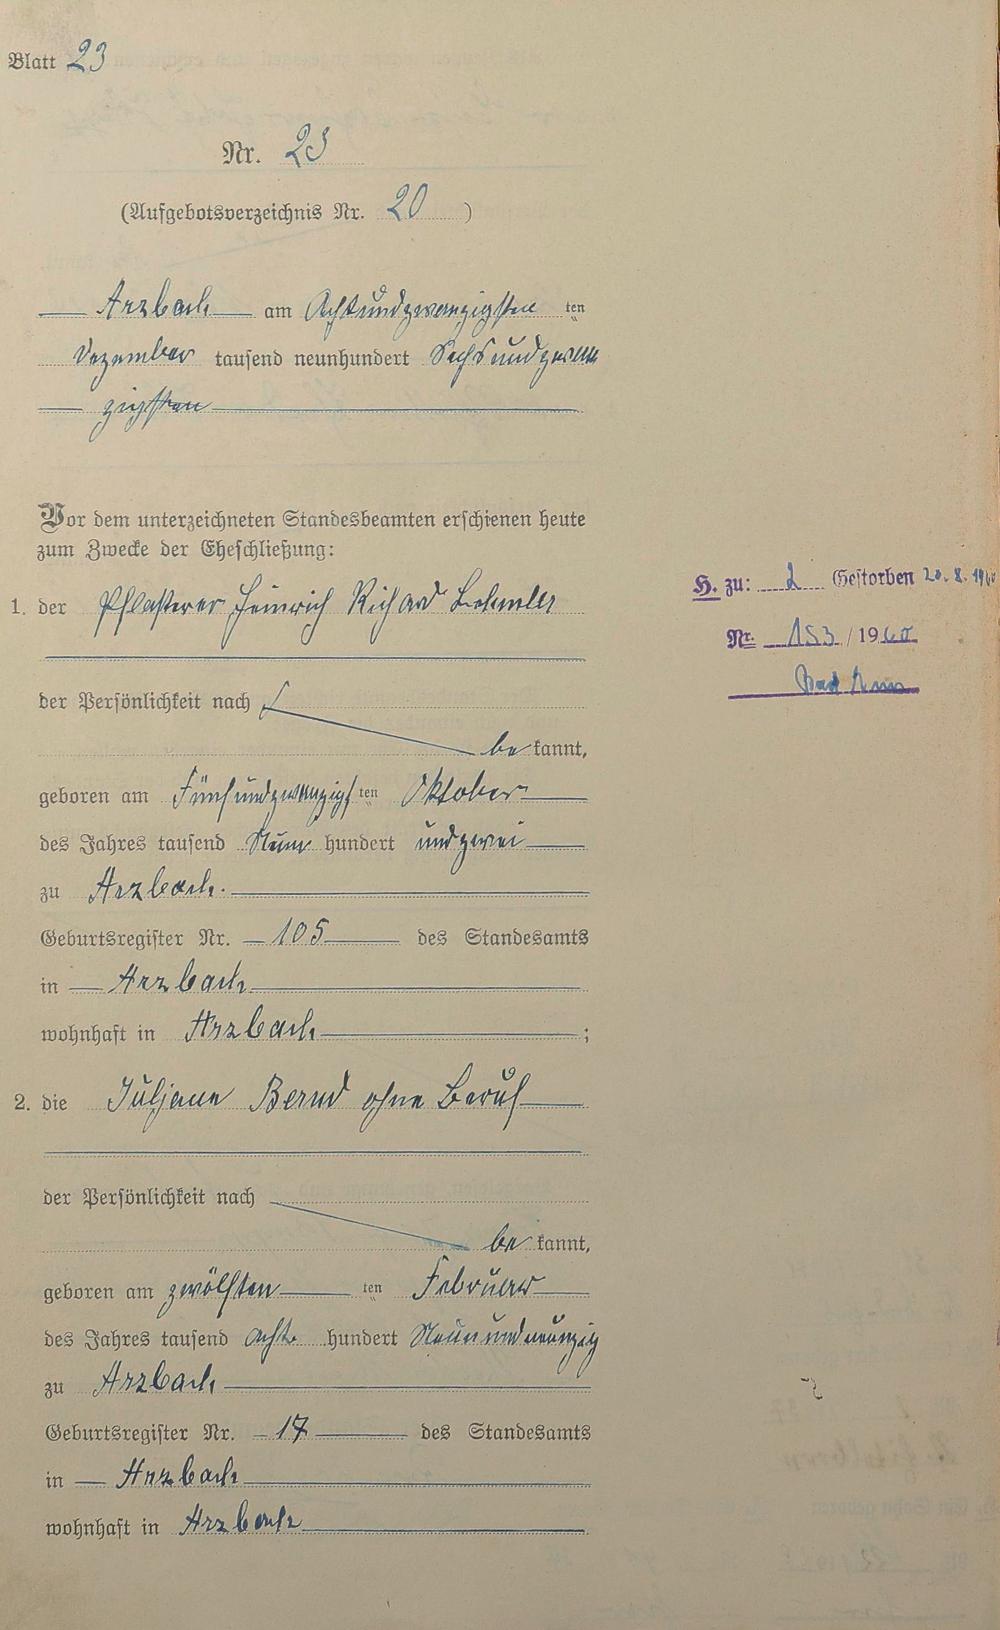 Blatt 23
Nr. 23
(Aufgebotsverzeichnis Nr. 20)
Arzbach am Achtundzwanzigsten ten
Dezember tausend neunhundert Sechsundzwan
zigsten
Vor dem unterzeichneten Standesbeamten erschienen heute
zum Zwecke der Eheschließung:
1. der Pflasterer Heinrich Richard
der Persönlichkeit nach
be kannt,
geboren am Fünfundzwanzigs ten Oktober
des Jahres tausend Neun hundert undzwei
zu Arzbach.
Geburtsregister Nr. 105 des Standesamts
in Arzbach
wohnhaft in Arzbach ;
2. die Juljane Bernd ohne Beruf
der Persönlichkeit nach
be kannt,
geboren am zwölften ten Februar
des Jahres tausend acht hundert Neunundneunzig
zu Arzbach
Geburtsregister Nr. 17 des Standesamts
in Arzbach
wohnhaft in Arzbach
H. zu: 2 Gestorben 20.8.1960
Nr. 153/1960
Bad Ems